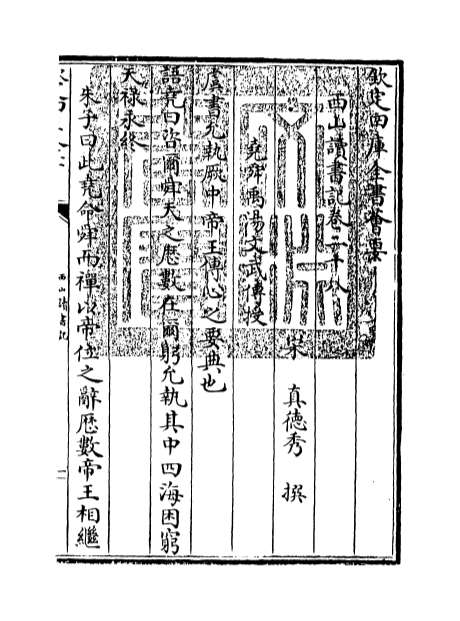 欽定四庫全書薈要
西山讀書記卷二十八
宋 真德秀 撰
堯舜禹湯文武傳授
虞書允執厥中帝王傳心之要典也
語堯曰咨爾舜天之厯數在爾躬允執其中四海困窮
天祿永終
朱子曰此堯命舜而禪以帝位之辭厯數帝王相繼
西山讀書記
一